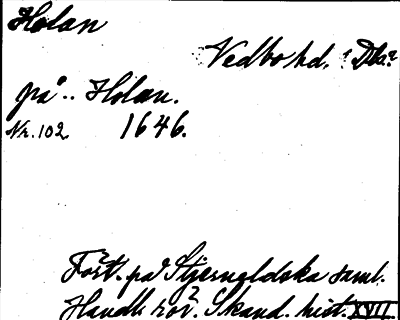 Holan
Vedbo hd. Dls?
på .. Holan.
Nr. 102. 1646.
Fört. på Stjerneldska saml.
Handl. rör. Skand. hist. XVII